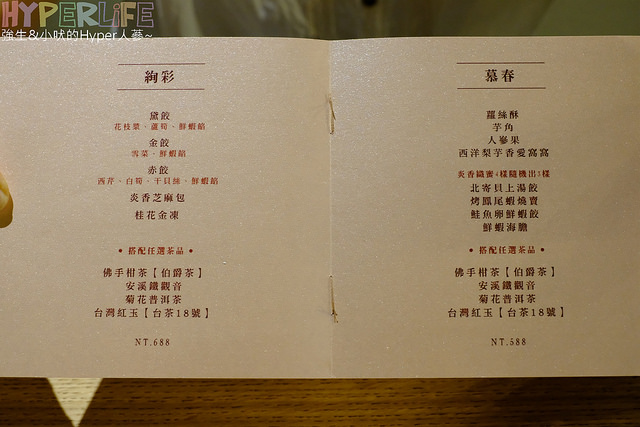 HYPERLIFE
強生&小吠的Hyper人蔘~
絢彩
黛餃
花枝漿、蘆筍、鮮蝦餡
金餃
雪菜、鮮蝦餡
赤餃
西芹、白筍、干貝絲、鮮蝦餡
炎香芝麻包
桂花金凍
• 搭配任選茶品 •
佛手柑茶【伯爵茶】
安溪鐵觀音
菊花普洱茶
台灣紅玉【台茶18號】
NT.688
慕春
蘿絲酥
芋角
人蔘果
西洋梨芋香愛窩窩
炎香鐵蜜4樣隨機出3樣
北寄貝上湯餃
烤鳳尾蝦燒賣
鮭魚卵鮮蝦餃
鮮蝦海膽
• 搭配任選茶品 •
佛手柑茶【伯爵茶】
安溪鐵觀音
菊花普洱茶
台灣紅玉【台茶18號】
NT.588